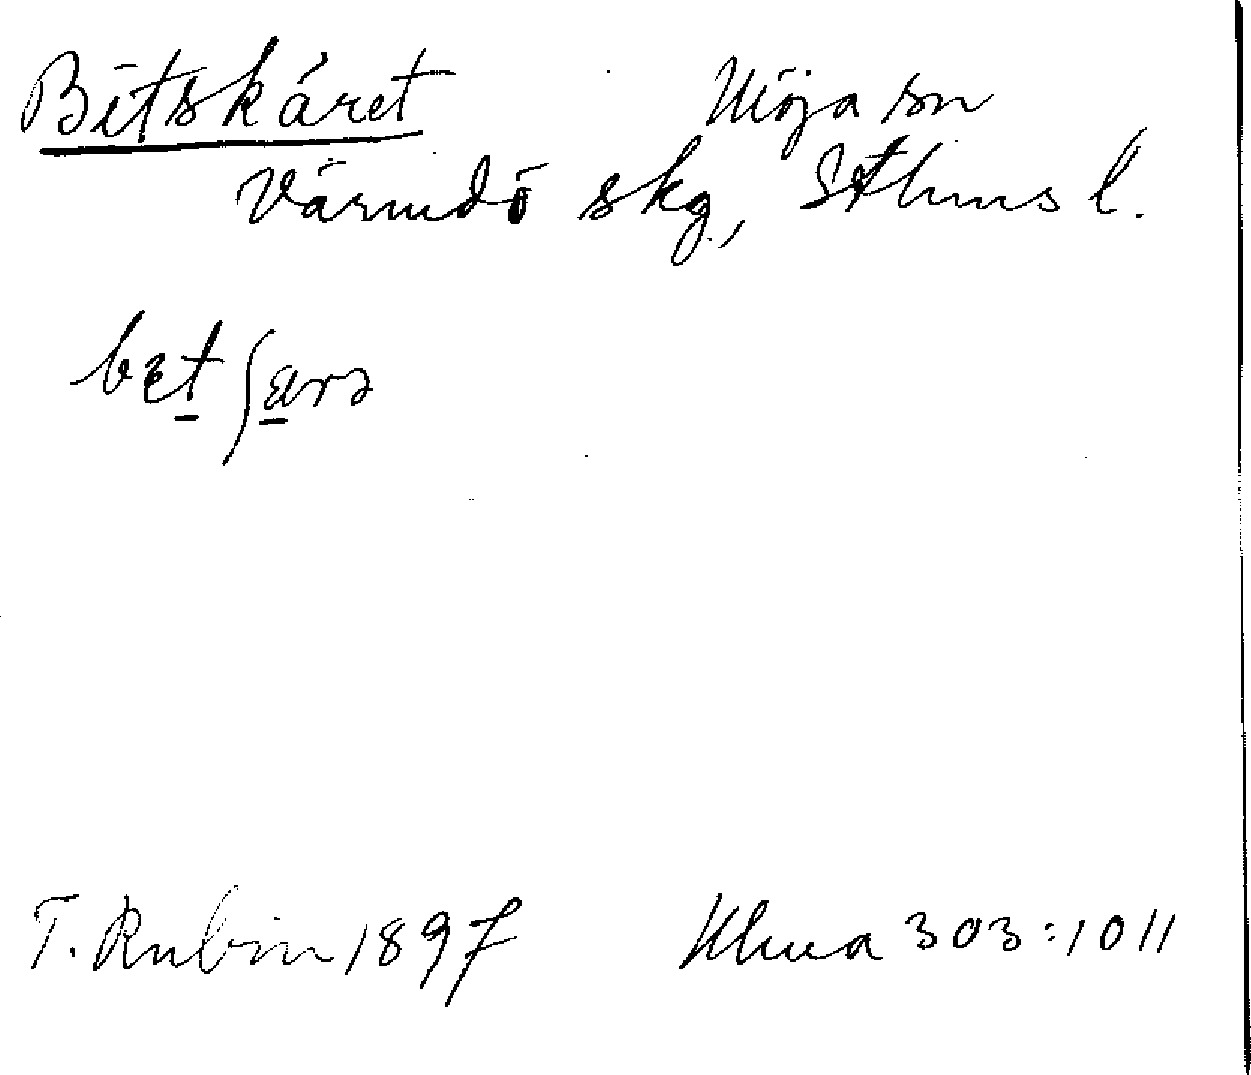 Betskäret Möja sn
Värmdö skg, Sthms l.
bɛt ʃærə
T. Rubin 1897 Uhwa 303:1011